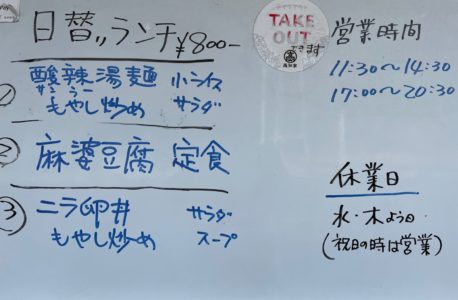 日替ランチ ¥800-
① 酸辣湯麺 小ライス
サンラー
もやし炒め サラダ
② 麻婆豆腐 定食
③ ニラ卵丼 サラダ
もやし炒め スープ
TAKE
OUT
できます
営業時間
11:30〜14:30
17:00〜20:30
休業日
水・木よう日
(祝日の時は営業)